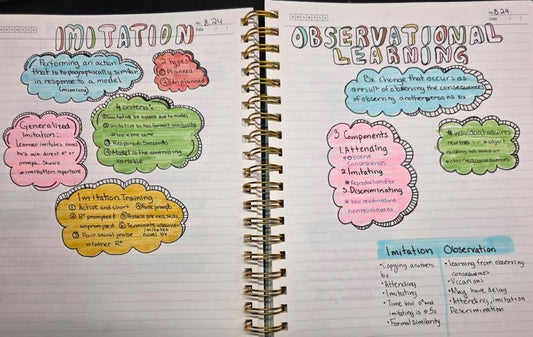 No. 8.24
Date
IMITATION
Performing an action
that is topographically similar
in response to a model
(mimicing)
2 types
① Planned
② Unplanned
Generalized
Imitation:
Learner imitates novel
bx's w/o direct or
prompts. Shows
imitation repertoire
4 criteria:
①
② Imitation & model
look the same
③ Response 5 seconds
④ Model is the controlling
variable
Imitation Training
① Active and short
② R+ prompted &
unprompted
③ Pair social praise
w/other R+
④ Fade prompts
⑤ Assess prereq skills
⑥ Terminate when
imitates
novel bx
No. 8.24
Date
OBSERVATIONAL
LEARNING
Bx change that occurs as
a result of observing the consequences
of observing another persons bx
3 Components
1. Attending
• observe
consequences
2. Imitating
3. Discriminating
Imitation
• Copying anothers
bx
• Attending
• Imitating
• Time b/w and
imitating is 5s
• Formal Similarity
Observation
• learning from observing
consequences
• Vicarious
• May have delay
• Attending, imitation
Descrimination